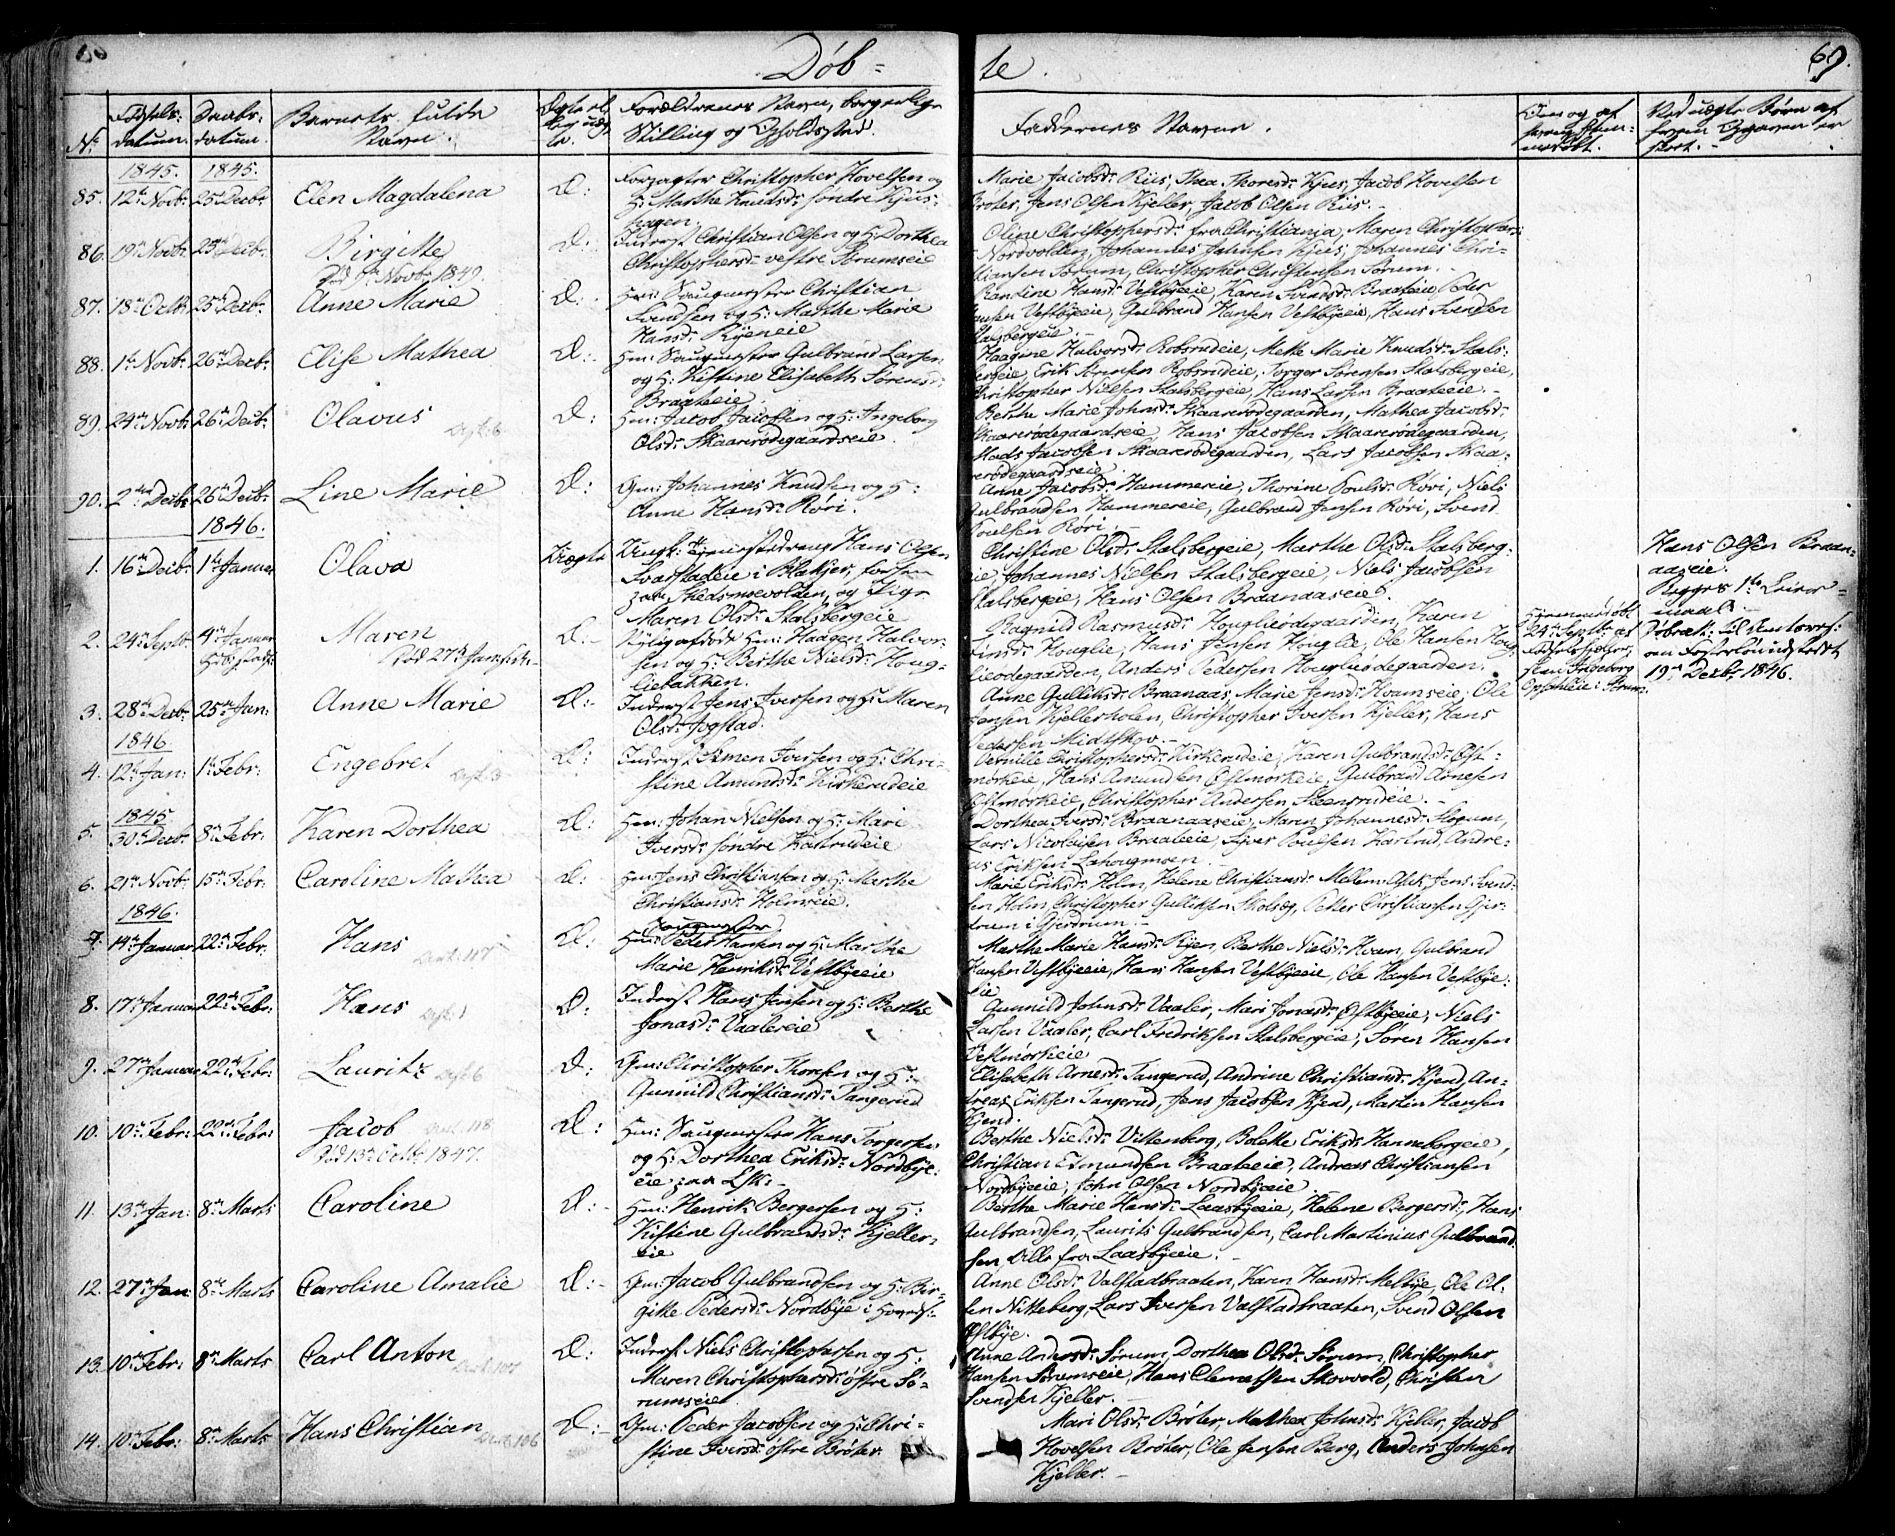 Døb-
te.
69.
No
Fødsels-
datum.
Daabs-
datum.
Barnets fulde
Navn.
Forældrenes Navn, borgerlige
Stilling og Opholdsted.
Faddernes Navne.
1845. 1845.
85. 12te Novbr 25 Decbr Elen Magdalena D: Forpagter Christopher Hovelsen og
H: Marthe Knudsdr søndre Kjus-
hagen.
Marie Jacobsdr Riis, Thea Thoresdr Kjus, Jacob Hovelsen
Brøter, Jens Olsen Kjeller, Jacob Olsen Riis.-
86. 19de Novbr 25de Decbr Birgitte D: Inderst Christian Olsen og H: Dorthea
Død Novbr 1849. Christophersdr vestre Sørumseie
Oline Christophersdr fra Christiania, Maren Christophersdr
Nordvolden, Johannes Jahnsen Kjus, Johannes Chri-
stiansen Sørum, Christopher Christensen Sørum.-
87. 18de Octbr 25de Decbr Anne Marie D: Hm: Saugmester Christian
Svendsen og H: Marthe Marie
Hansdr Ryeneie
Randine Hansdr Vestbyeie, Karen Svendsdr Braateie, Peder
Hansen Vestbyeie, Gulbrand Hansen Vestbyeie, Hans Svendsen
Stalsbergeie.-
88. 1te Novbr 26de Decbr Elise Mathea D: Hm: Saugmester Gulbrand Larsen
og H: Kistine Elisabeth Sørensdr
Braateeie.
Haagine Halvorsdr Robsrudeie, Mette Marie Knudsdr Stals-
bergeie, Erik Robsrudeie, Torger Sørensen Stalsbergeie,
Christopher Nielsen Stalsbergeie, Hans Larsen Braateeie.-
89. 24de Novbr 26de Decbr Olavus D: Hm: Jacob Jacobsen og H: Ingeborg
Olsdr Skaarerødegaardseie.
Berthe Marie Johnsdr Skaarerødegaarden, Mathea Jacobsdr
Skaarerødegaardseie, Hans Jacobsen Skaarerødegaarden,
Mads Jacobsen Skaarerødegaarden, Lars Jacobsen Skaa-
rerødegaardseie.
90. 2den Decbr 26de Decbr Line Marie D: Gm: Johannes Knudsen og H:
Anne Hansdr Røri.
Anne Jacobsdr Hammereie, Thorine Poulsdr Røri, Niels
Gulbrandsen Hammereie, Gulbrand Jensen Røri, Svend
Poulsen Røri.-
1846.
1. 16de Decbr 1te Januar Olava Uægte Ungk: Tjenestedreng Hans Olsen
Svarstadeie i Blakjer, for
paa Skedsmovolden, og Pige
Maren Olsdr Stalsbergeie
Christine Olsdr Stalsbergeie, Marthe Olsdr Stalsberg-
eie, Johannes Nielsen Stalsbergeie, Niels Jacobsen
Stalsbergeie, Hans Olsen Braanaaseie.
Hans Olsen Braan-
aaseie.
Begges 1te Leier-
maal.-
2. 24de Septbr 4de Januar Maren D:- Hm: Haagen Halvor-
Død 27de Jan. sen og H: Berthe Nielsdr Houg-
liebakken.
Ragnild Rasmusdr Houglieødegaarden, Karen
Finsdr Houglie, Hans Jensen Houglie, Ole Hansen Houg-
lieødegaarden, Anders Pedersen Houglieødegaarden.
Hjemmedøbt
24de Septbr af
19de Decbr 1846.
3. 28de Decbr 25de Jan: Anne Marie D:- Inderst Jens Iversen og H: Maren
Olsdr Jogstad.
Anne Gulliksdr Braanaas, Marie Jensdr Hvamseie, Ole
Jensen Kjellerholen, Christopher Iversen Kjeller, Hans
Pedersen Midtskov.-
1846.
4. 12te Jan: 1te Febr: Engebret D: Inderst Simen Iversen og H: Chri-
stine Amundsdr Kirkerudeie
Pernille Christophersdr Kirkerudeie, Karen Gulbrandsdr Øst-
mørkeie, Hans Amundsen Østmørkeie, Gulbrand Arnesen
Østmørkeie, Christopher Andersen Steensrudeie.-
1845
5. 30te Decbr 8de Febr: Karen Dorthea D: Hm: Johan Nielsen og H: Mari
Iversdr søndre Kastrudeie
Dorthea Iversdr Braanaaseie, Maren Johannesdr Sløgum,
Lars Nicolaisen Braateeie, Syver Poulsen Karlrud, Andre-
as Eriksen Lahougmoen.-
6. 21de Novbr 15de Febr: Caroline Mathea D: Hm: Jens Christiansen og H: Marthe
Christiansdr Holmseie.
Marie Eriksdr Holm, Helene Christiansdr Mellem-Ask, Jens Svend-
sen Holm, Christopher Gulliksen Skolseg, Petter Christiansen Gjer-
drum i Gjerdrum.-
1846.
7. 14de Januar 22de Febr: Hans D: Hm: Peder Hansen og H: Marthe
Marie Henriksdr Vestbyeie
Marthe Marie Hansdr Ryen, Berthe Nielsdr Hvam, Gulbrand
Hansen Vestbyeie, Hans Hansen Vestbyeie, Ole Hansen Vestbye-
eie
8. 17de Januar 22de Febr: Hans D: Inderst Hans Jensen og H: Berthe
Jonasdr Vaalereie
Gunnild Johnsdr Vaaler, Mari Jonasdr Østbyeie, Niels
Larsen Vaaler, Carl Fredriksen Stalsbergeie, Søren Hansen
Vestmørkeie
9. 27de Januar 22de Febr: Lauritz D: Gm: Christopher Thorsen og H:
Gunnild Christiansdr Tangerud
Elisabeth Arnesdr Tangerud, Andrine Christiansdr Kjend, An-
dreas Eriksen Tangerud, Jens Jacobsen Kjend, Martin Hansen
Kjend.
10. 10de Febr: 22de Febr: Jacob D: Hm: Saugmester Hans Torgersen
Død 13de Octbr 1847. og H: Dorthea Eriksdr Nordbye-
eie paa Ask.-
Berthe Nielsdr Vittenberg, Bolette Eriksdr Hanneborgeie,
Christian Edmundsen Braateeie, Andreas Christiansen
Nordbyeeie, John Olsen Nordbyeeie.
11. 13de Jan: 8de Marts Caroline D:- Hm: Henrik Bergersen og H:
Kistine Gulbrandsdr Kjeller-
eie
Berthe Marie Hansdr Laasbyeie, Helene Bergersdr, Hans
Gulbrandsen, Laurits Gulbrandsen, Carl Martinius Gulbrand-
sen, Alle fra Laasbyeie.-
12. 27de Jan: 8de Marts Caroline Amalie D:- Gm: Jacob Gulbrandsen og H: Bir-
gitte Pedersdr Nordbye i
Anne Olsdr Valstadbraaten, Karen Hansdr Melbye, Ole Ol-
sen Nitteberg, Lars Iversen Valstadbraaten, Svend Olsen
Østbye.
13. 10de Febr: 8de Marts Carl Anton D: Inderst Niels Christophersen og H:
Maren Christophersdr østre Sø-
rumseie
Anne Andersdr Sørum, Dorthea Olsdr Sørum, Christopher
Hansen Sørumseie, Hans Clemetsen Skovvold, Christen
Svendsen Kjeller.-
14. 10de Febr: 8de Marts Hans Christian D:- Gm: Peder Jacobsen og H: Chri-
stine Iversdr østre Brøter.
Mari Olsdr Brøter, Mathea Johnsdr Kjeller, Jacob
Hovelsen Brøter, Ole Jensen Berg, Anders Johnsen
Kjeller.-